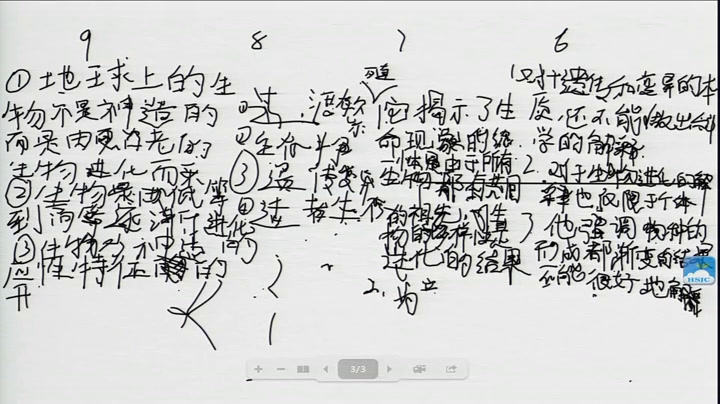 9
①地球上的生
物不是神造的
而是由更古老的
生物进化而来
②生物是由低等
到高等逐渐进化的
③
8
①过 度繁
②生存斗争
③遗传变异
④适者生存
7
它揭示了生
命现象的统
一性是由于所有
生物都有共同
的祖先,生
物的多样性是
进化的结果
2.
6
1.对遗传和变异的本
质,还不能做出科
学的解释
2.对生物进化的解
释也仅限于个体
3 他强调物种的
形成都是渐变的结果
不能很好地解释
3/3
HSIC